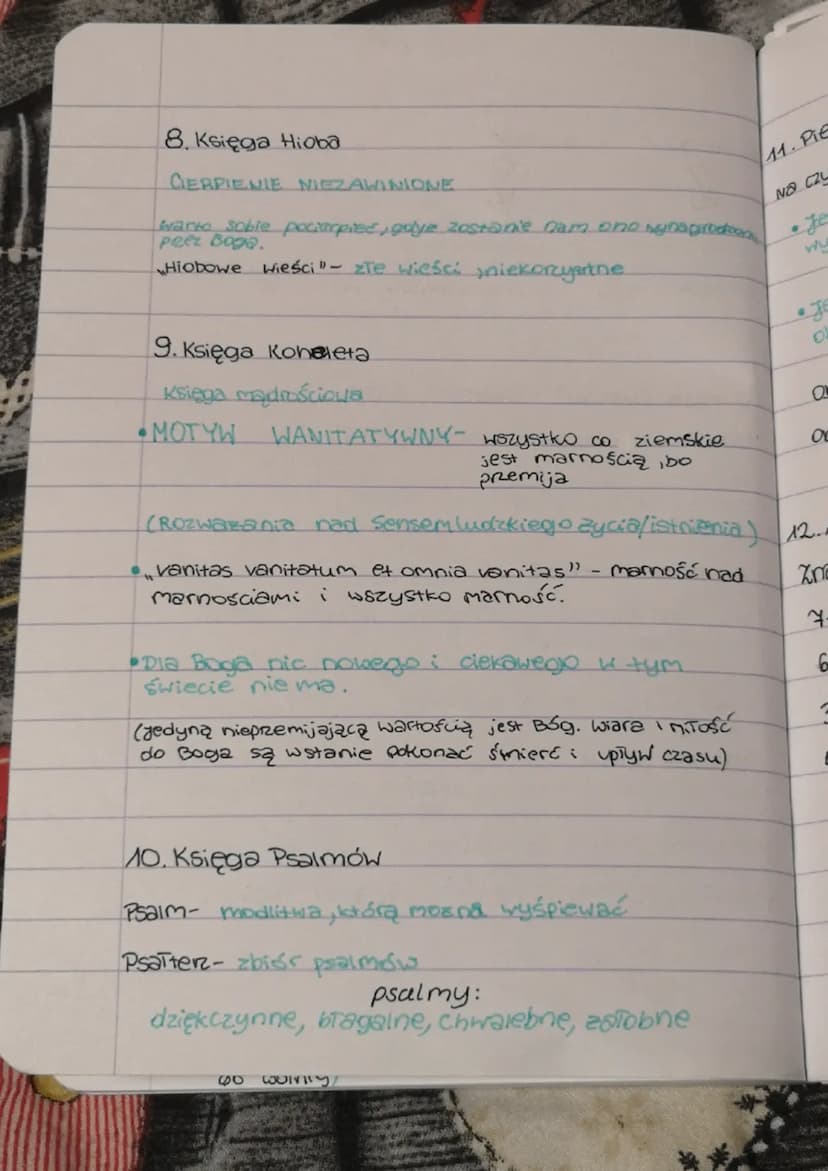 8. Księga Hioba
CIERPIENIE NIEZAWINIONE
warto sobie pocierpieć, gdyż zostanie nam ono wynagrodzone
peez Boga.
„Hiobowe wieści" - złe wieści, niekorzystne
9. Księga Koheleta
Księga mądrościowa
• MOTYW WANITATYWNY - wszystko co ziemskie
jest marnością, bo
przemija
(Rozważania nad sensem ludzkiego życia/istnienia)
• „vanitas vanitatum et omnia vanitas" - marność nad
marnosciami i wszystko marność.
• Dla Boga nic nowego i ciekawego w tym
świecie nie ma.
(jedyną nieprzemijającą wartością jest Bóg. Wiara i miłość
do Boga są wstanie pokonać śmierć i upływ czasu)
10. Księga Psalmów
Psalm - modlitwa, którą można wyśpiewać
Psałterz - zbiór psalmów
psalmy:
dziękczynne, błagalne, chwalebne, żałobne
11. Pie
na czy
• Je
wy
• Je
12.
7
6